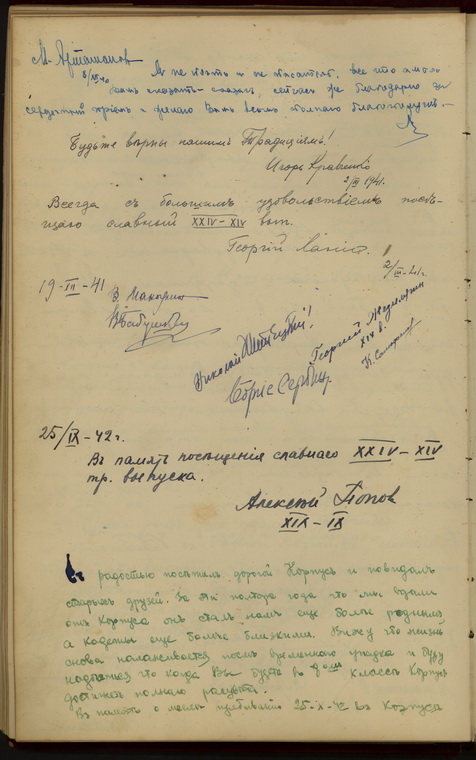 М. Артамонов
Я не поэтъ и не писатель, все что я могъ
Вамъ сказать — сказалъ, сейчасъ же благодарю за
сердечный пріемъ и желаю Вамъ всѣмъ полнаго благополучія. —
Будьте вѣрны нашимъ Традиціямъ!
Игорь Кравченко
2/III 1941.
Всегда съ большимъ удовольствіемъ посѣ-
щаю славный XXIV–XIV вып.
Георгій
2/III-41г.
19-III-41
В. Макаренко
Николай
Георгій
XIV в.
Борис Сербин
25/IX-42г.
Въ память посѣщенія славнаго XXIV–XIV
пр. выпуска.
Алексѣй Поповъ
XIX–IX
Съ радостью посѣтилъ дорогой Корпусъ и повидалъ
старыхъ друзей. За эти полтора года что мы вдали
отъ Корпуса онъ сталъ намъ еще болѣе роднымъ,
а кадеты еще болѣе близкими. Вижу что жизнь
снова налаживается послѣ временнаго упадка и буду
надѣяться что когда Вы будете въ 8ом классѣ Корпусъ
достигнетъ полнаго расцвѣта.
Въ память о моемъ пребываніи 25-X-42 въ Корпусѣ